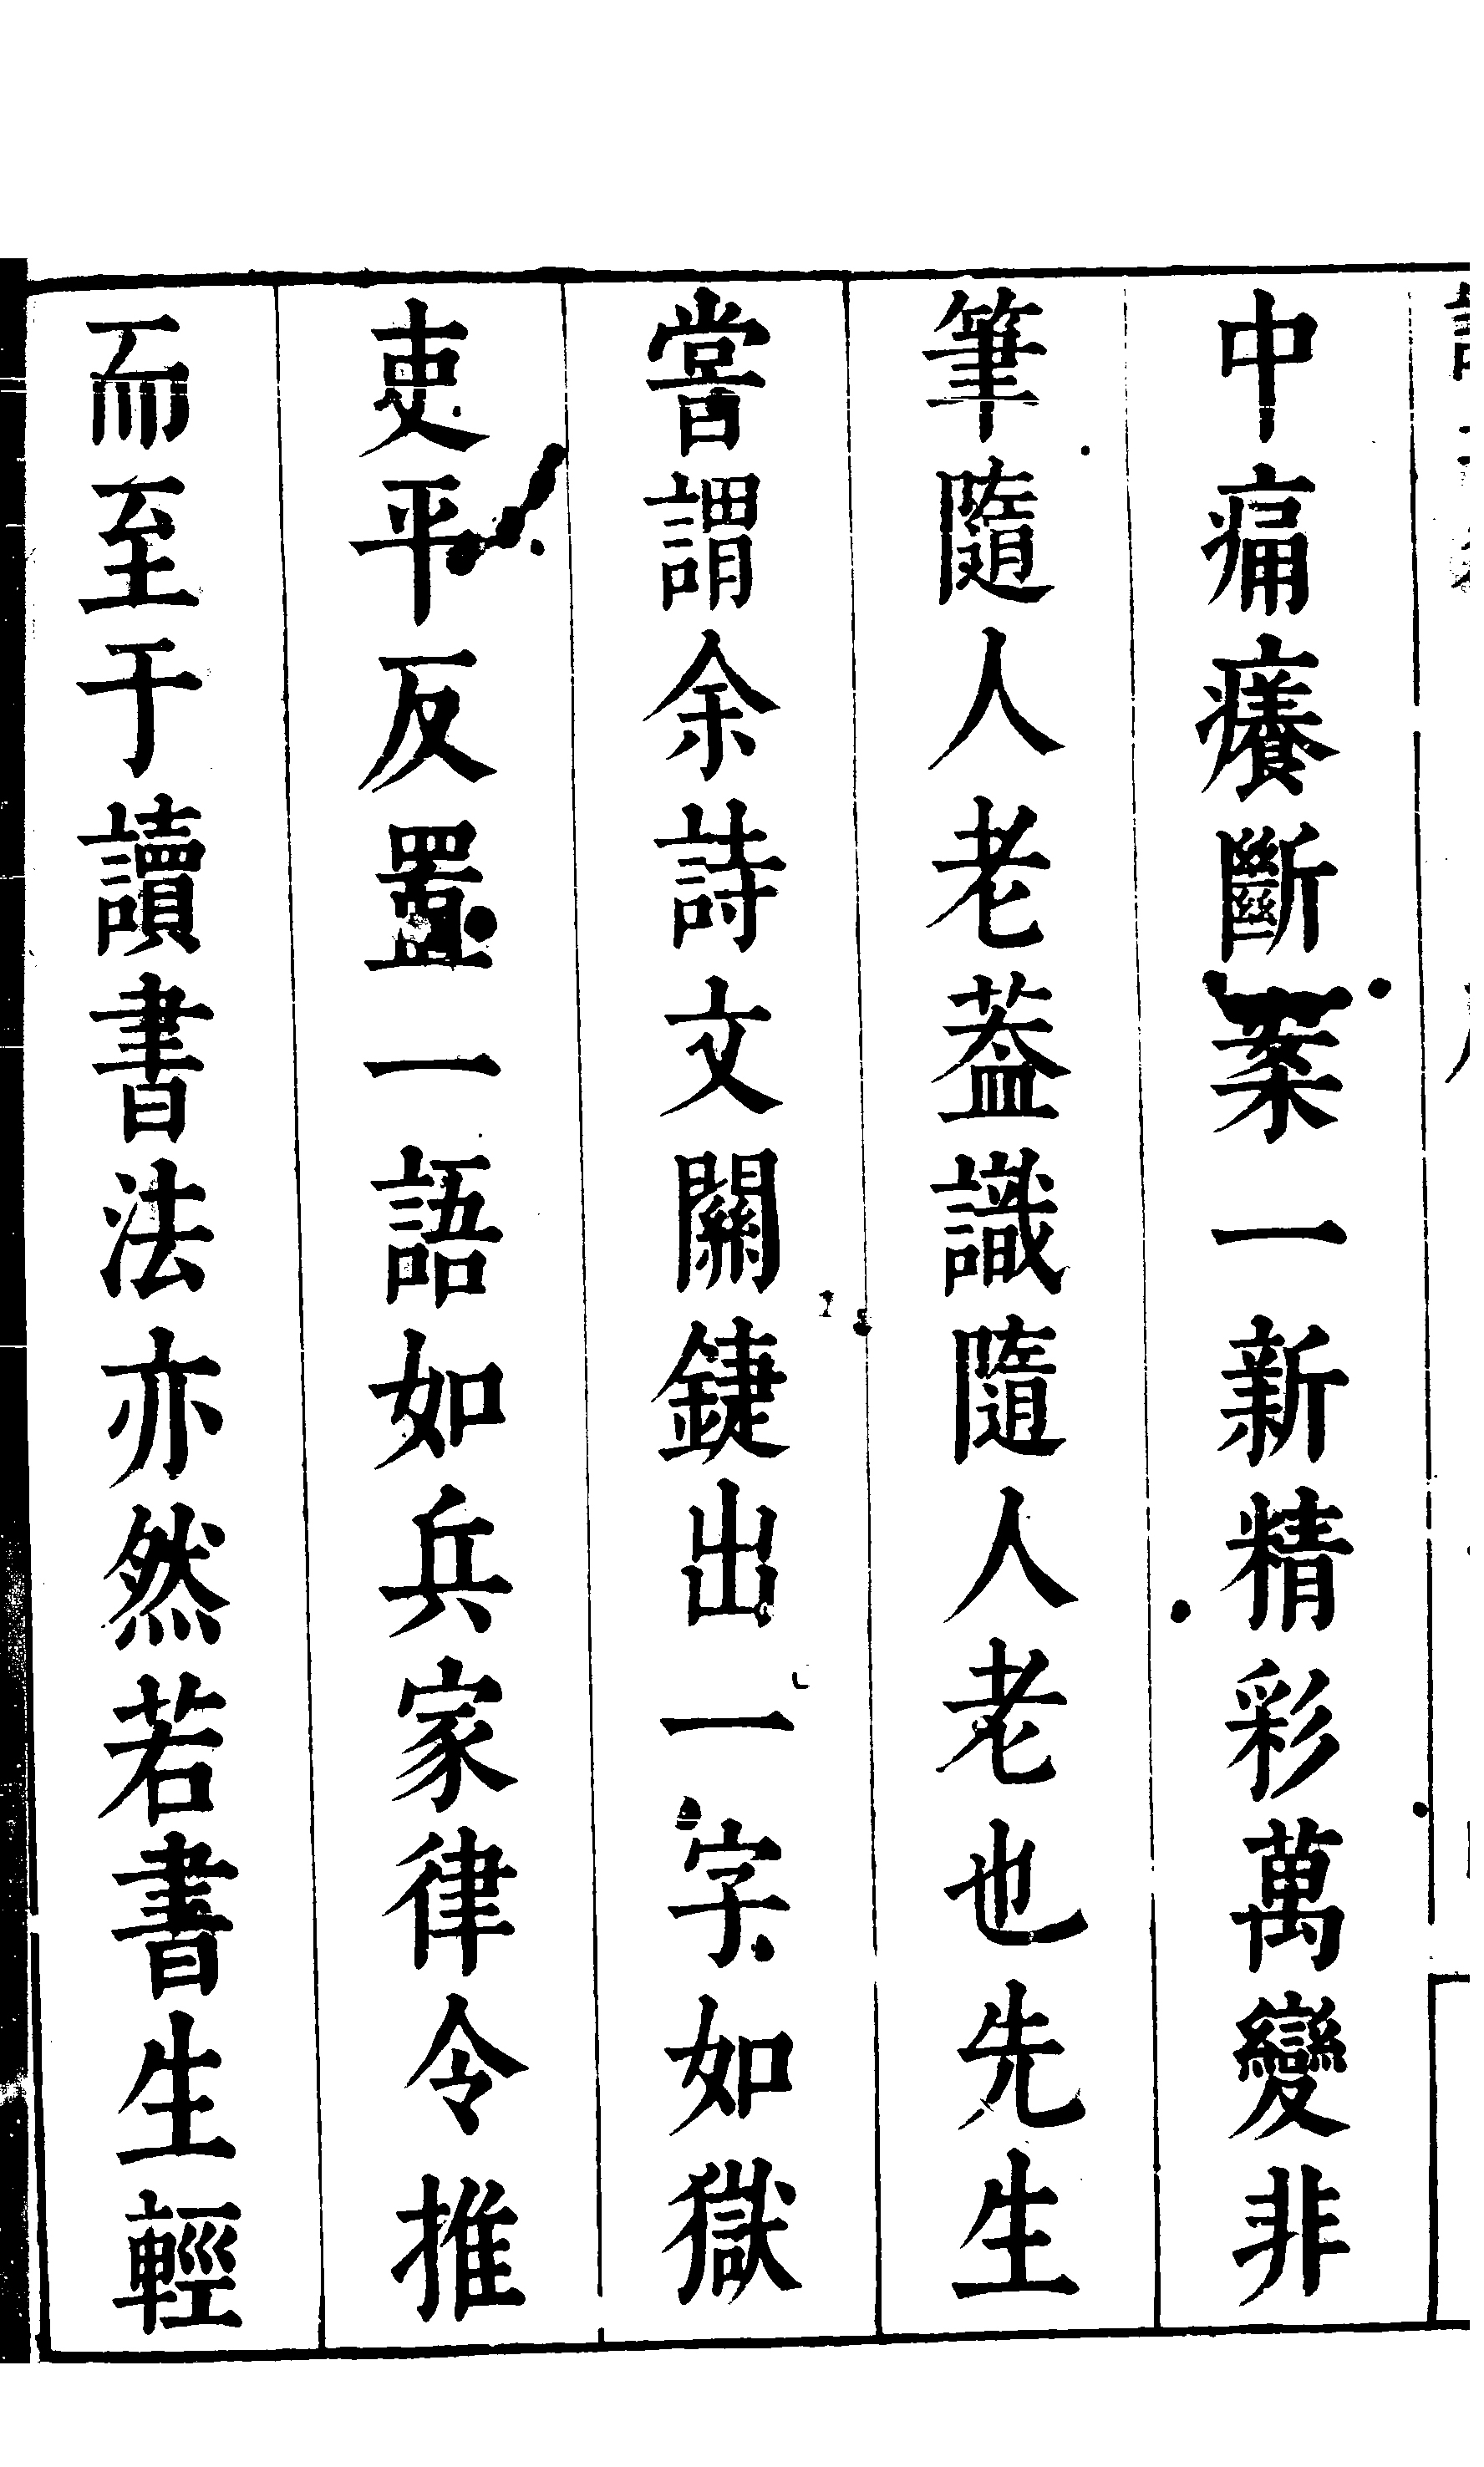 中痛癢斷案一新精彩萬變非
筆隨人老葢識隨人老也先生
嘗謂余詩文關鍵出一字如獄
吏平反置一語如兵家律令推
而至于讀書法亦然若書生輕